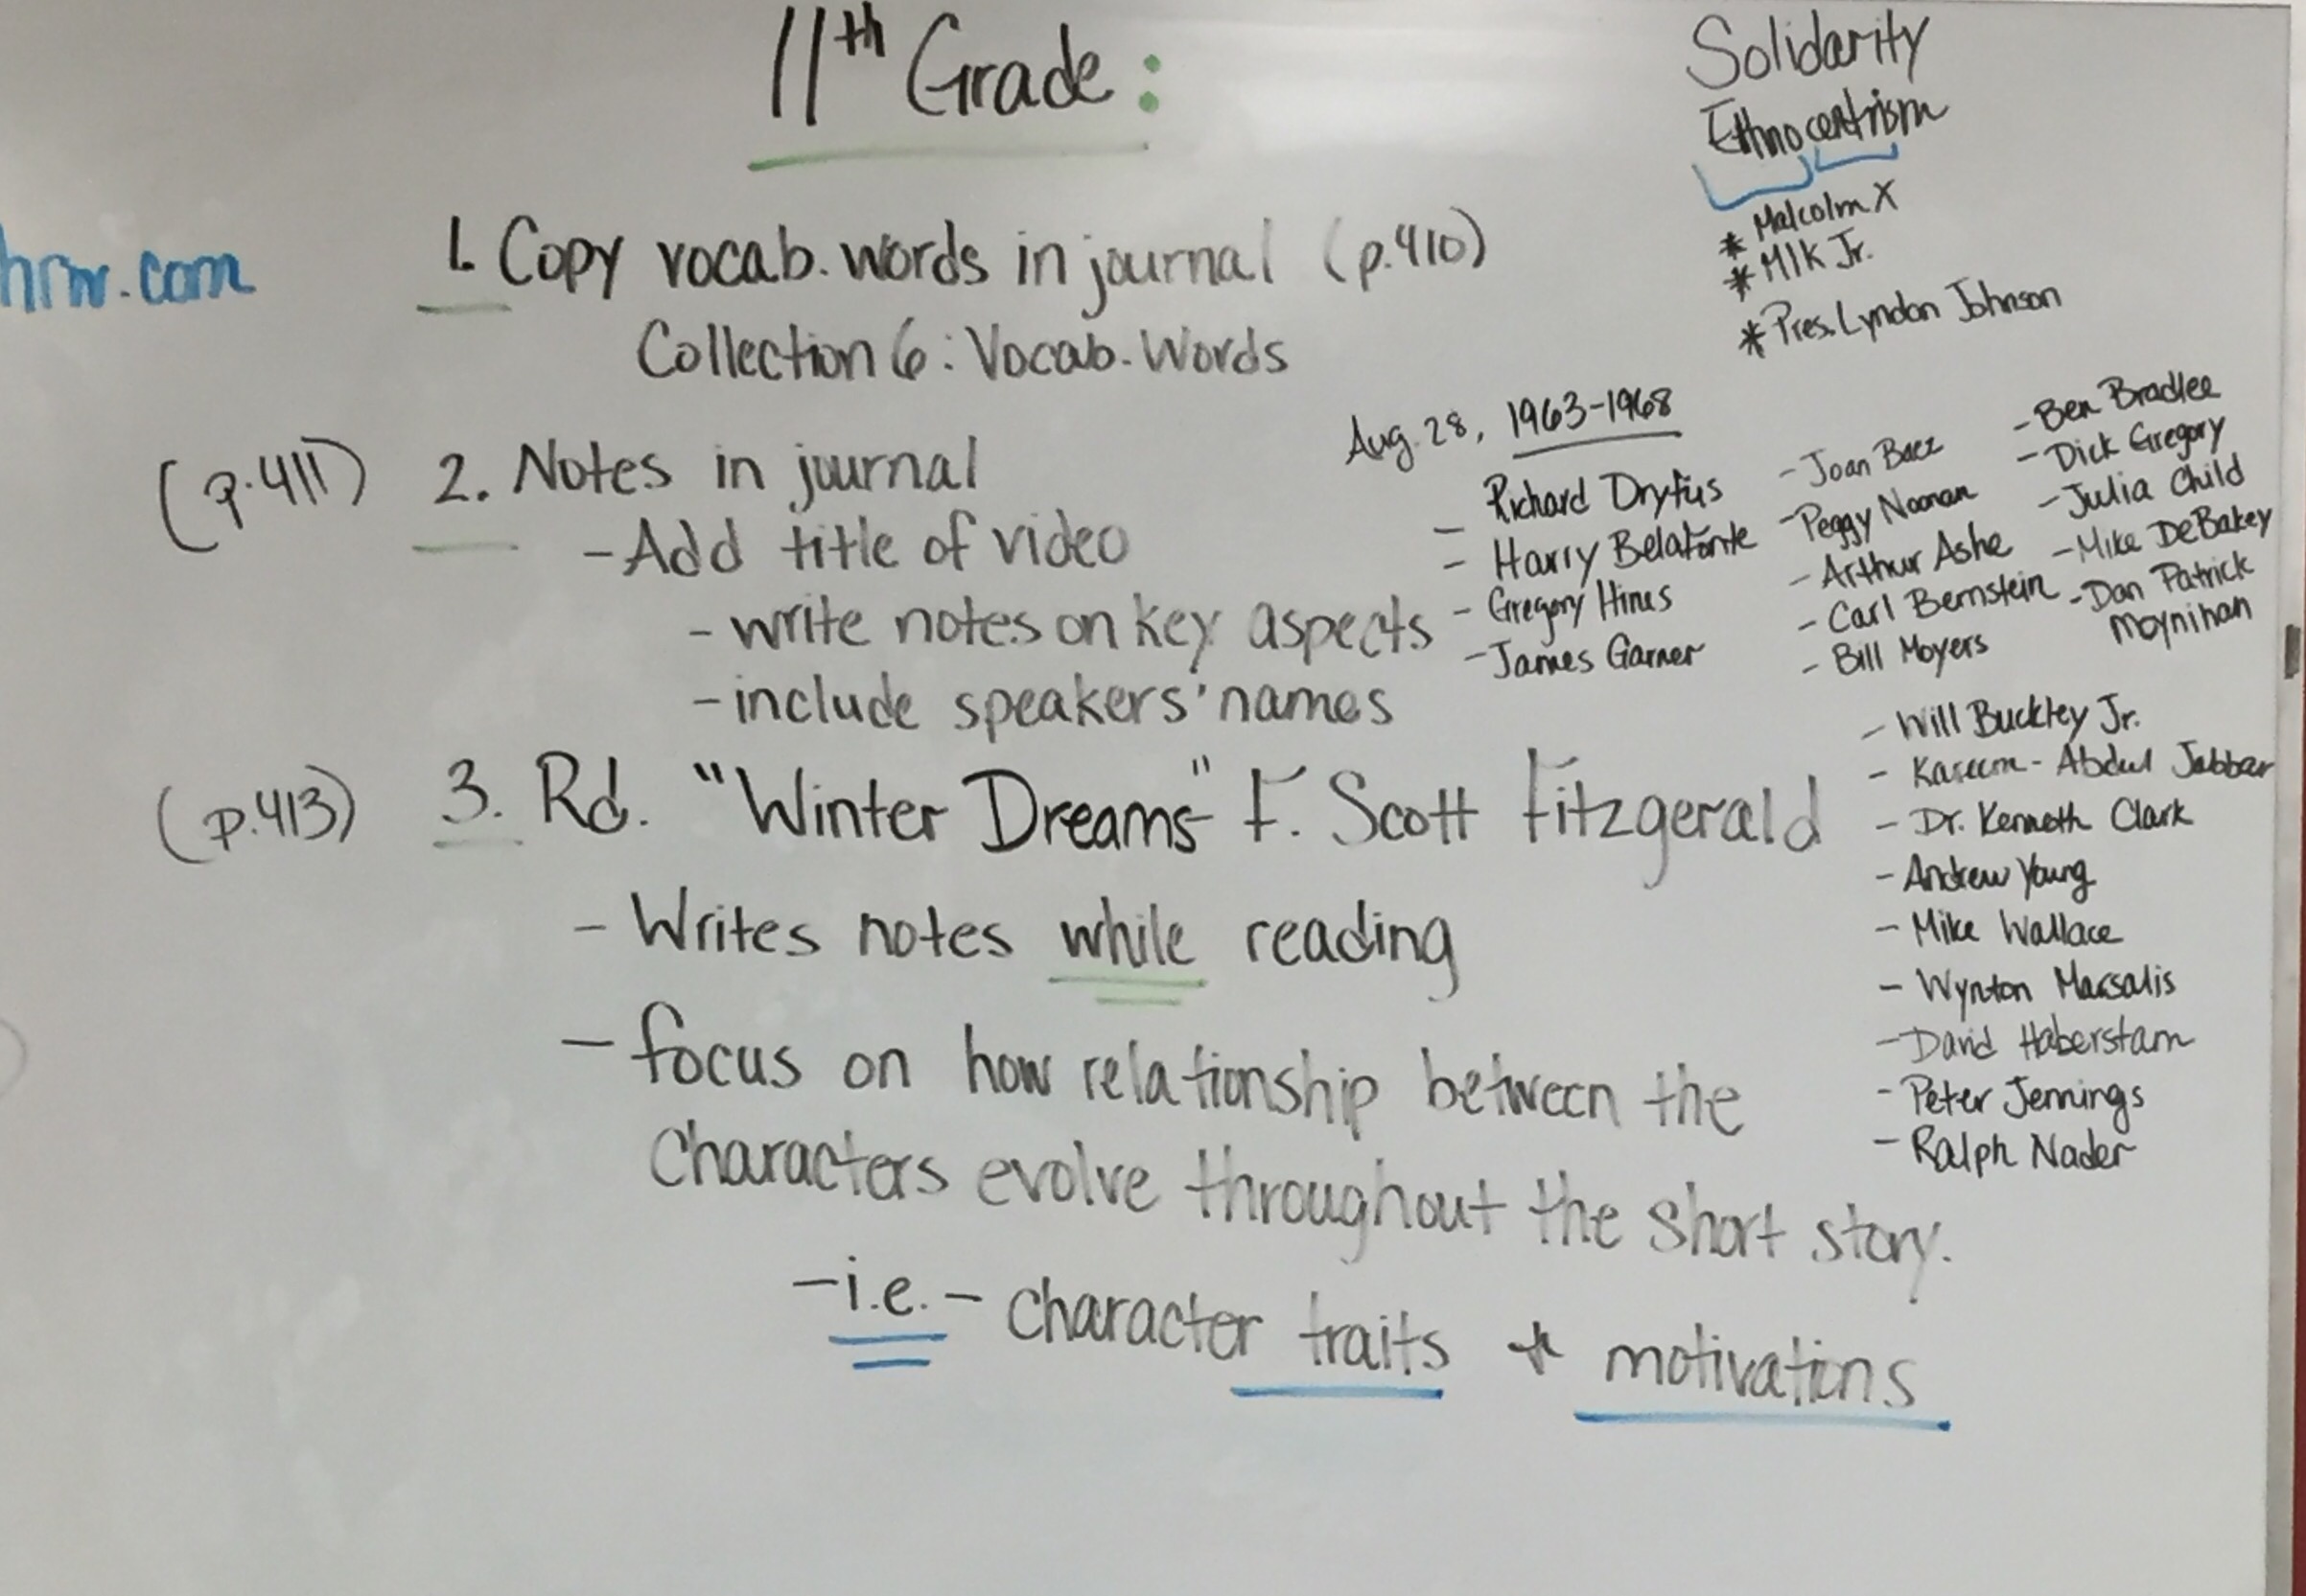 11th Grade:
Solidarity
Ethnocentrism
* Malcolm X
* MLK Jr.
* Pres. Lyndon Johnson
hrw.com
1. Copy vocab. words in journal (p.410)
Collection 6: Vocab. Words
(p.411) 2. Notes in journal
- Add title of video
- write notes on key aspects
- include speakers' names
Aug. 28, 1963-1968
- Richard Dryfus
- Harry Belafonte
- Gregory Hines
- James Garner
- Joan Baez
- Peggy Noonan
- Arthur Ashe
- Carl Bernstein
- Bill Moyers
- Ben Bradlee
- Dick Gregory
- Julia Child
- Mike DeBakey
- Dan Patrick
Moynihan
- Will Buckley Jr.
- Kareem-Abdul Jabbar
- Dr. Kenneth Clark
- Andrew Young
- Mike Wallace
- Wynton Marsalis
- David Haberstam
- Peter Jennings
- Ralph Nader
(p.413) 3. Rd. "Winter Dreams" F. Scott Fitzgerald
- Writes notes while reading
- focus on how relationship between the
Characters evolve throughout the short story.
- i.e. - character traits + motivations